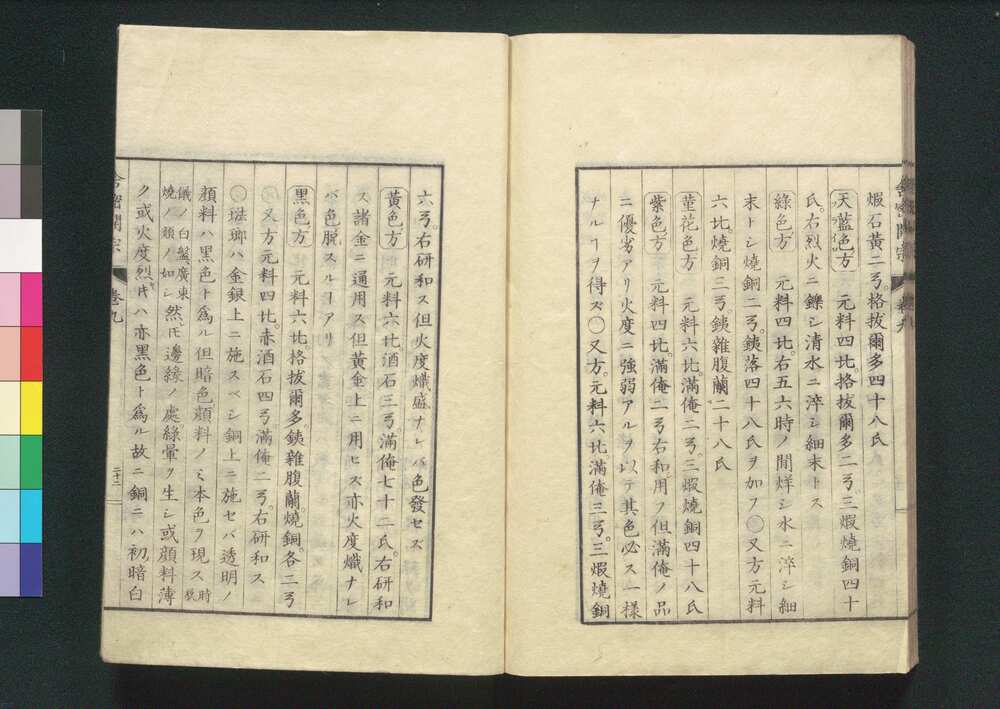 煆石黄二ゟ。格抜爾多四十八氏
天藍色方 元料四比。格抜爾多二ゟ。三煆焼銅四十
氏。右烈火ニ鑠シ清水ニ淬シ細末トス
緑色方 元料四比。右五六時ノ間烊シ水ニ淬シ細
末トシ焼銅二ゟ。銕落四十八氏ヲ加フ○又方元料
六比。焼銅三ゟ。銕雑腹蘭二十八氏
菫花色方 元料六比。満俺二ゟ。三煆焼銅四十八氏
紫色方 元料四比。満俺二ゟ右和用フ但満俺ノ品
ニ優劣アリ火度ニ強弱アルヲ以テ其色必ス一様
ナルヿヲ得ズ○又方。元料六比。満俺三ゟ。三煆焼銅
六ゟ。右研和ス但火度熾盛ナレバ色發セズ
黄色方 元料六比酒石三ゟ。満俺七十二氏。右研和
ス諸金ニ通用ス但黄金上ニ用ヒズ亦火度熾ナレ
バ色脱スルヿアリ
黒色方 元料六比格抜爾多。銕雑腹蘭。焼銅。各二ゟ
○又方元料四比。赤酒石四ゟ満俺二ゟ。右研和ス
○琺瑯ハ金銀上ニ施スベシ銅上ニ施セバ透明ノ
顔料ハ黒色ト為ル但暗色顔料ノミ本色ヲ現ス時
儀ノ白盤廣東焼ノ類ノ如シ然𪜈邊縁ノ處。緑暈ヲ生シ或顔料薄
ク或火度烈𪜈ハ亦黒色ト為ル故ニ銅ニハ初。暗白
舎密開宗 巻九 二十二